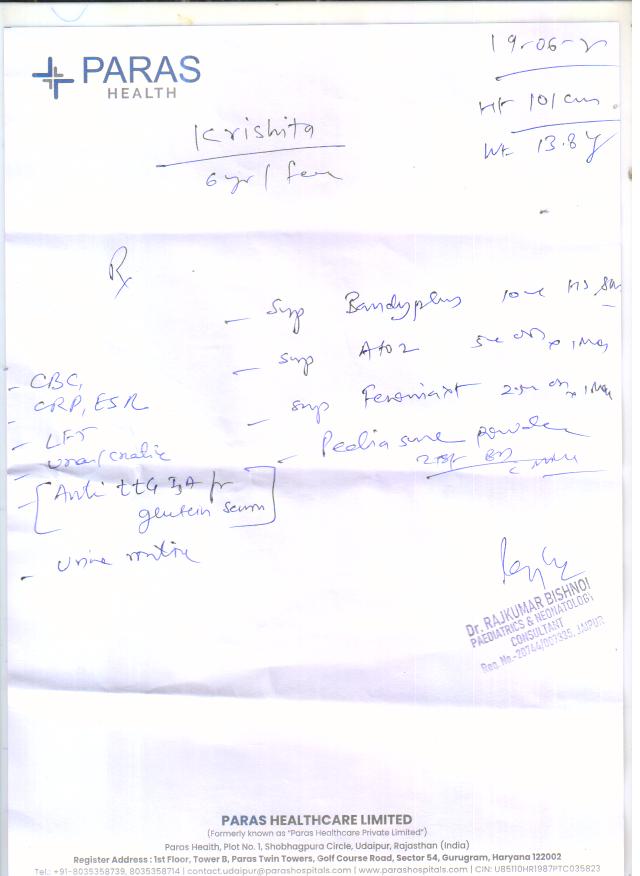 PARAS
HEALTH
19-06-
Ht 101 cm
Wt 13.8
Krishita
6 yr / fem
Rx
- Syp Bandyplus 10ml HS
- Syp A to Z 5ml OD x 1 Mo
- Syp 2.5ml OD x 1 Mo
- Pediasure powder
2 tsf BD c milk
- CBC,
- CRP, ESR
- LFT
- Urea/
- Anti ttG IgA for
gluten serum
- Urine routine
Dr. RAJKUMAR BISHNOI
PAEDIATRICS & NEONATOLOGY
CONSULTANT
Reg. No.-20744/007335, JAIPUR
PARAS HEALTHCARE LIMITED
(Formerly known as "Paras Healthcare Private Limited")
Paras Health, Plot No. 1, Shobhagpura Circle, Udaipur, Rajasthan (India)
Register Address : 1st Floor, Tower B, Paras Twin Towers, Golf Course Road, Sector 54, Gurugram, Haryana 122002
Tel.: +91-8035358739, 8035358714 | contact.udaipur@parashospitals.com | www.parashospitals.com | CIN: U85110HR1987PTC035823